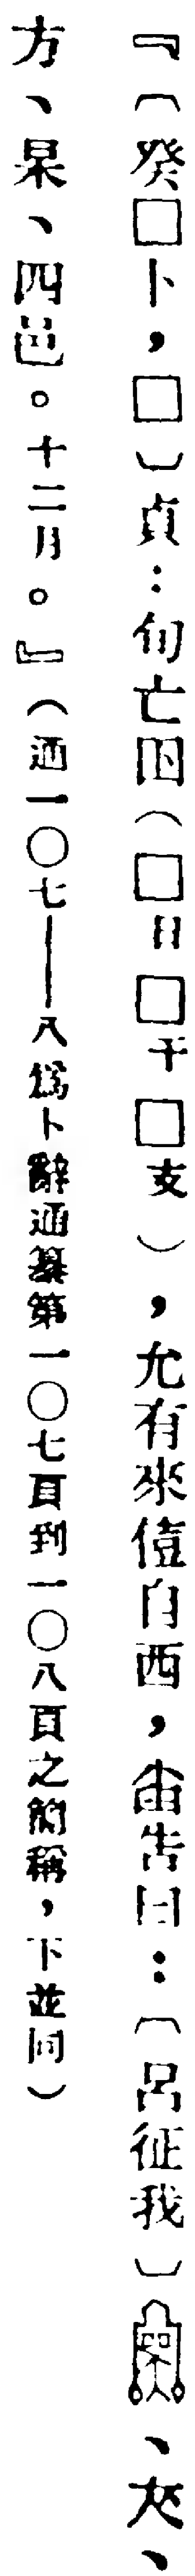 『〔癸□卜，□〕貞：旬亡𡆥（□日□干□支），允有來僖自西，𠧞告曰：〔呂征我〕、灰、
方、杲、四邑。十二月。』（通一〇七——八爲卜辭通纂第一〇七頁到一〇八頁之簡稱，下並同）